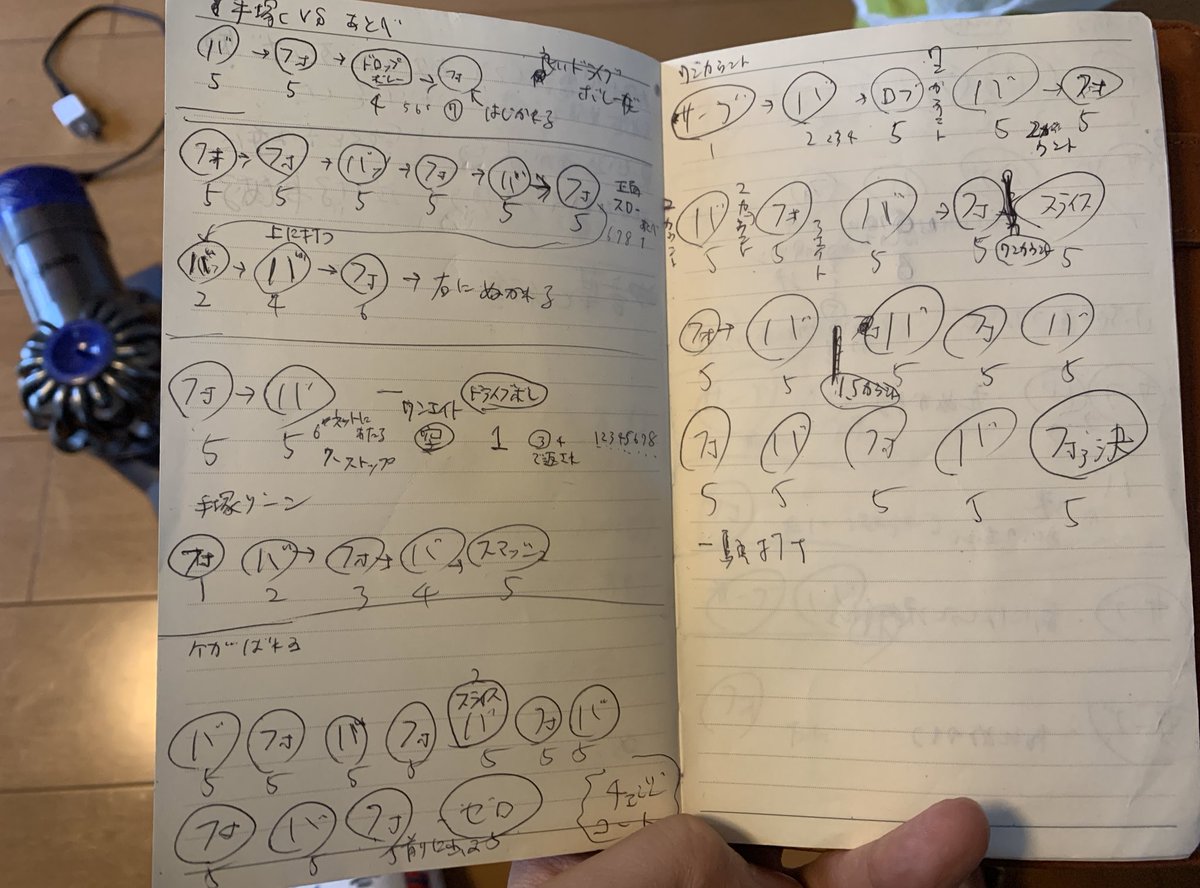 手塚 VS あとべ
バ → フォ → ドロップボレー → フォ
5 5 4 5 6 ⑦ はじかれる
フォ → フォ → バ → フォ → バ → フォ
5 5 5 5 5 5
6 7 8 1
上に打つ
バ → バ → フォ → 右にぬかれる
2 4 6
フォ → バ ドライブボレー
5 5 6 ネットにあたる 7 ストップ 空 1 ③ 4 で返され 1 2 3 4 5 6 7 8
手塚ゾーン
フォ バ → フォ → バ → スマッシュ
1 2 3 4 5
ケガがばれる
2
バ フォ バ フォ スライスバ フォ バ
5 5 5 5 5 5 5
フォ バ フォ ゼロ チェンジコート
5 5 5
ワンカウント
サーブ → バ → ロブ ワンカウント バ → フォ
1 2 2 3 4 5 5 2カウント 5
バ 2カウント フォ バ → フォ スライス
5 5 5 5 ワンカウント 5
フォ → バ バ フォ バ
5 5 1.5カウント 5 5 5
フォ バ フォ バ フォ 決
5 5 5 5 5
一騎打ち